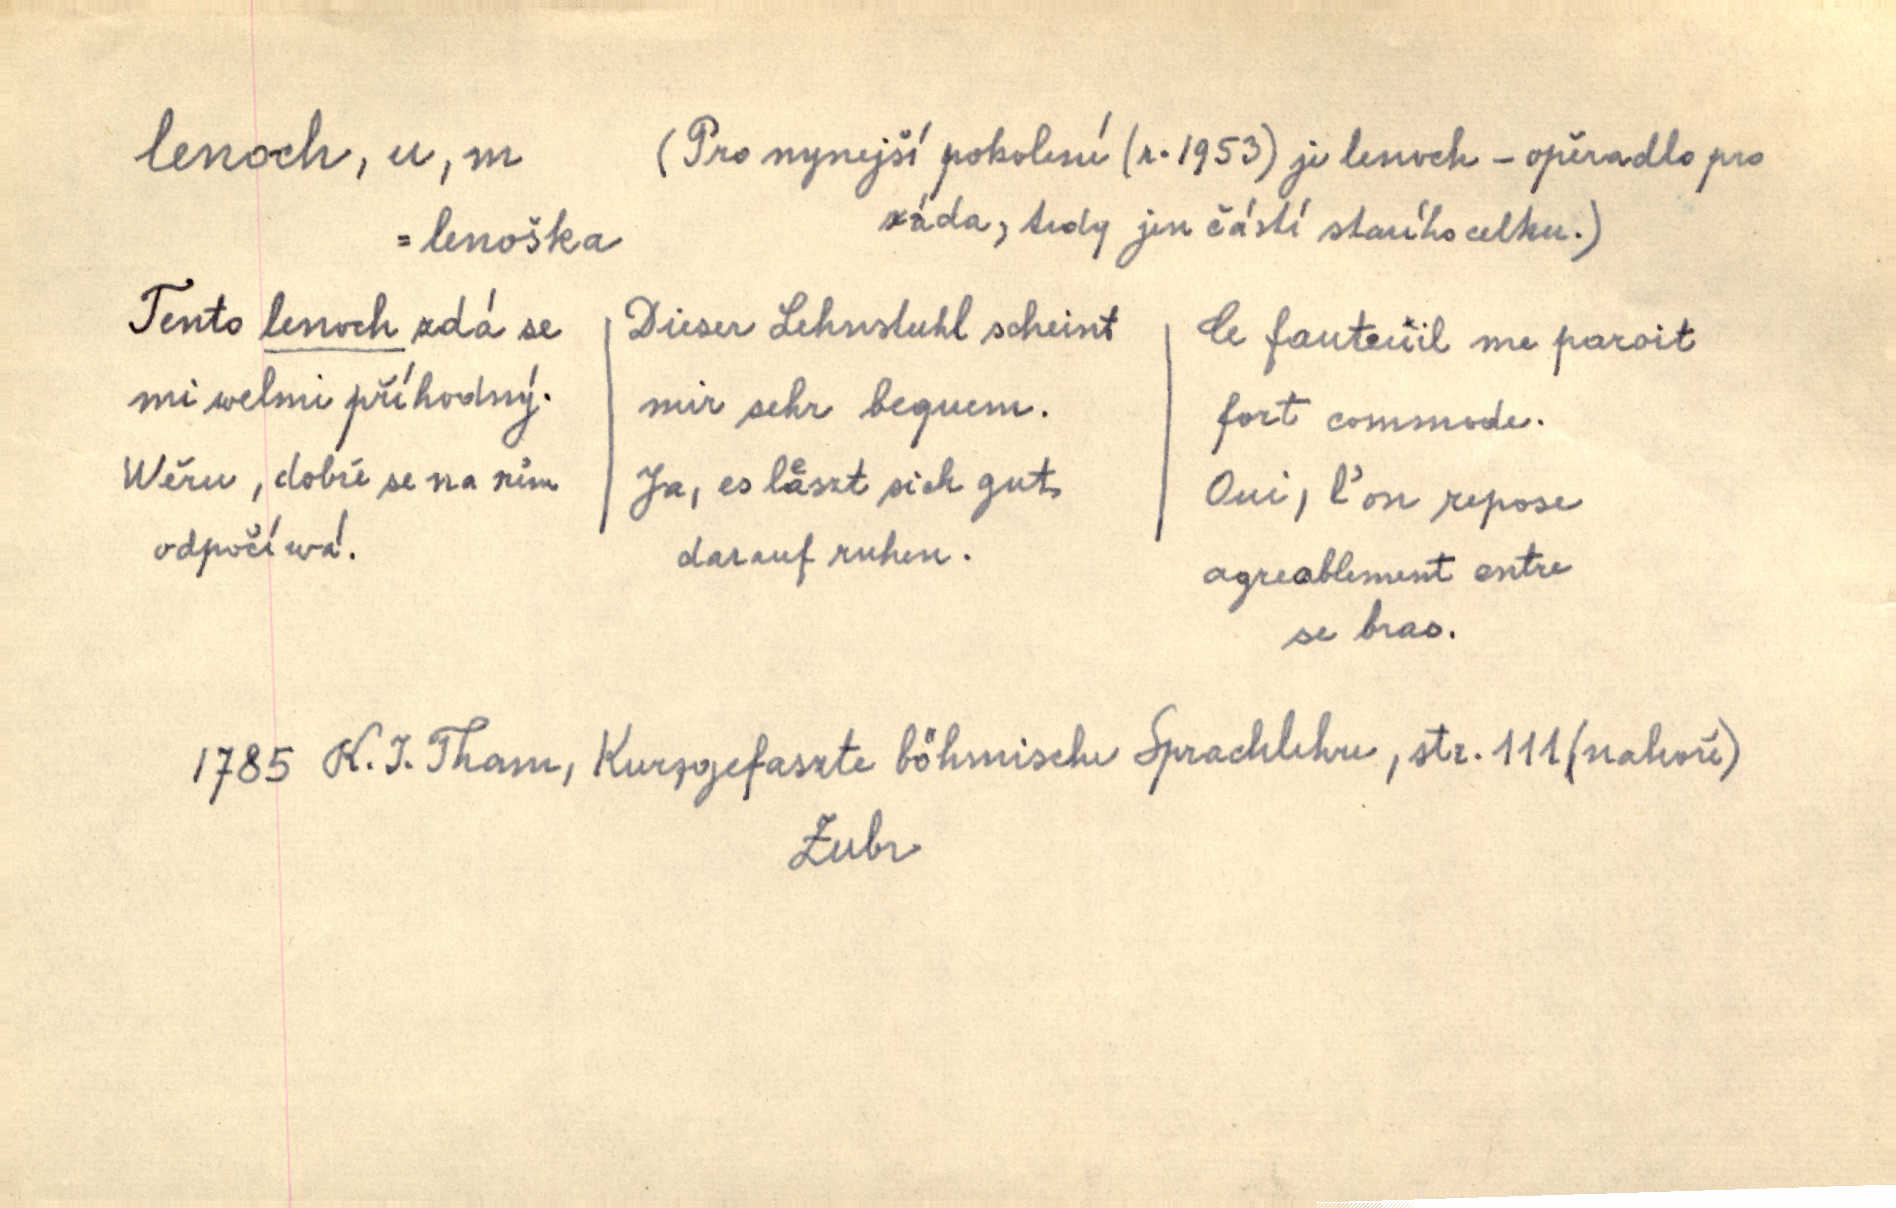 lenoch, u, m
(Pro nynejší pokolení (r. 1953) je lenoch – opěradlo pro
záda, tedy jen částí starého celku.)
= lenoška
Tento lenoch zdá se
mi welmi příhodný.
Wěru, dobře se na něm
odpočíwá.
Dieser Lehnstuhl scheint
mir sehr bequem.
Ja, es laͤszt sich gut
darauf ruhen.
Ce fauteüil me paroit
fort commode.
Oui, l'on repose
agreablement entre
se bras.
1785 K. I. Tham, Kurzgefaszte böhmische Sprachlehre, str. 111 (nahoře)
Zubr